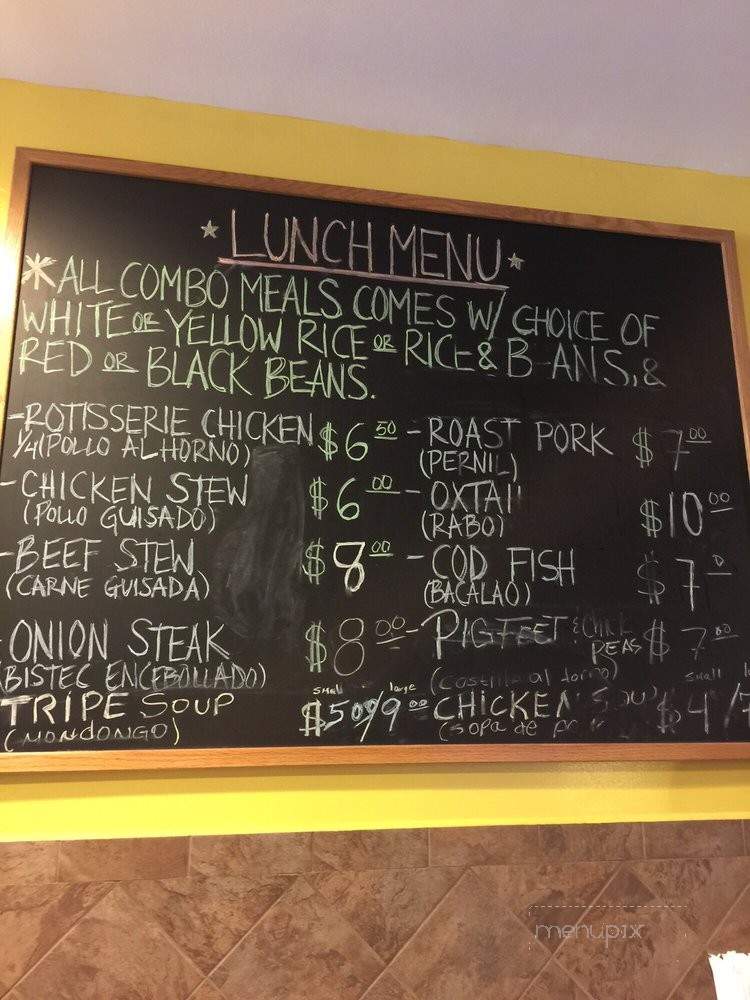 * LUNCH MENU *
* ALL COMBO MEALS COMES W/ CHOICE OF
WHITE OR YELLOW RICE OR RICE & B ANS, &
RED OR BLACK BEANS.
- ROTISSERIE CHICKEN $6 50
1/4 (POLLO AL HORNO)
- CHICKEN STEW $6 00
(POLLO GUISADO)
- BEEF STEW $8 00
(CARNE GUISADA)
ONION STEAK $8 00
(BISTEC ENCEBOLLADO)
small large
TRIPE SOUP $5 99
(MONDONGO)
- ROAST PORK $7 00
(PERNIL)
- OXTAIL $10 00
(RABO)
- COD FISH $7
(BACALAO)
- PIG FEET & CHICK PEAS $7 00
(costilla al horno)
small
CHICKEN SOUP $4/7
(sopa de
menupix